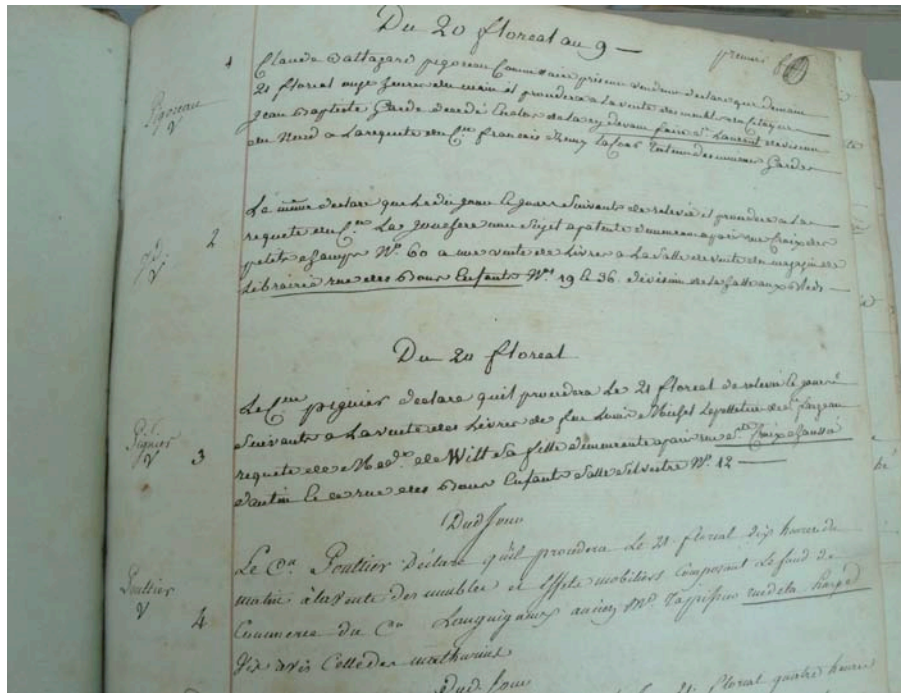 Du 20 floreal an 9 —
premier
1
Pigoreau
V
Claude Baltazard pigoreau Commissaire priseur vendeur declare que demain
21 floreal onze heures du matin il procedera a la vente des meubles du Citoyen
Jean Baptiste Garde decedé Enclos de la cy devant foire St. Laurent division
du Nord a la requete du Cen. francois Remy Tuteur des mineurs Garde
2
Id.
V
Le même declare que ledit jour et jours suivants de relevée il procedera a la
requete du Cen. demeurant a paris rue Croix des
petits champs No. 60 a une vente de Livres a la Salle de vente du magazin de
Librairie rue des bons Enfants No. 19 et 36. division de la halle aux bleds —
Du 20 floreal
Pignier
V
3
Le Cen. pignier declare qu'il procedera le 21 floreal de relevée et jours
Suivants a la vente des Livres de feu Louis Michel Lepelletier de St. fargeau
requete de Mad.e de Witt sa fille demeurante a paris rue Ste. Croix chaussée
d'antin et ce rue des bons Enfants Salle Silvestre No. 12 —
Dud Jour
Pouttier
V
4
Le Cen. Pouttier Déclare qu'il procedera Le 21 floreal dix heures du
matin à la vente des meubles et Effets mobiliers Composant Le fond de
Commerce du Cen. ancien Md. Tapissier rue de la harpe
vis avis Celle des mathurins
Dud. Jour
floreal quatre heures